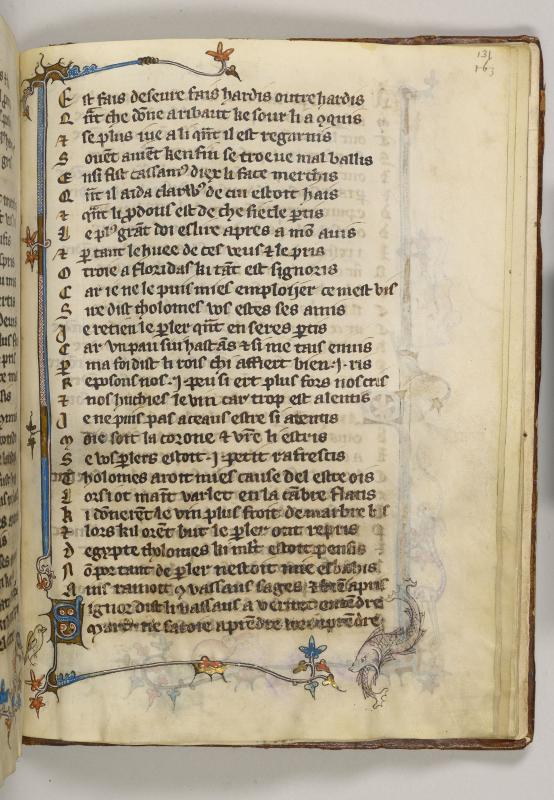 131
163
E st fais deseure fais hardis outre hardis
Q n̄t che dōne aribaut ke sour li a 9quis
⁊ se plus rue a li qn̄t il est regarnis
S ouēt auiēt ken fin se troeue mal baillis
E nsi fist cassamꝰ diex li face merchis
Q n̄t il aida clarꝰ de cui estoit hais
⁊ qn̄t li pdous est de che siecle ptis
L e plꝰ grāt doi eslire apres a mō auis
⁊ p tant le huee de ces veus ⁊ le pris
O troie a floridas ki tāt est signoris
C ar ie ne le puis mies emploijer ce mest vis
S ire dist tholomes vos estes ses amis
J e retien le pler qn̄t en seres ptis
C ar vn pau sui hastās ⁊ si me tais enuis
P ma foi dist li rois chi affiert bien .i. ris
R eposons nos .i. peu si ert plus fors nos cris
⁊ nos huchies le vin car trop est alentis
J e ne puis pas a ceaus estre si atentis
M oie soit la corone ⁊ vr̄e li estris
S e vos plers estoit .i. petit rafrescis
T holomes aroit mies cause del estre ois
L ors iot mant varlet en la cābre flatis
K i dōnerēt le vin plus froit de marbre bis
⁊ lors kil orēt but le pler ont repris
D egypte tholomes ki mlt estoit pensis
N ō por tant de pler nestoit mie esbahis
vassaus sages ⁊ biē apris
S ignor dist li vassaus a verite entendre
aprēdre